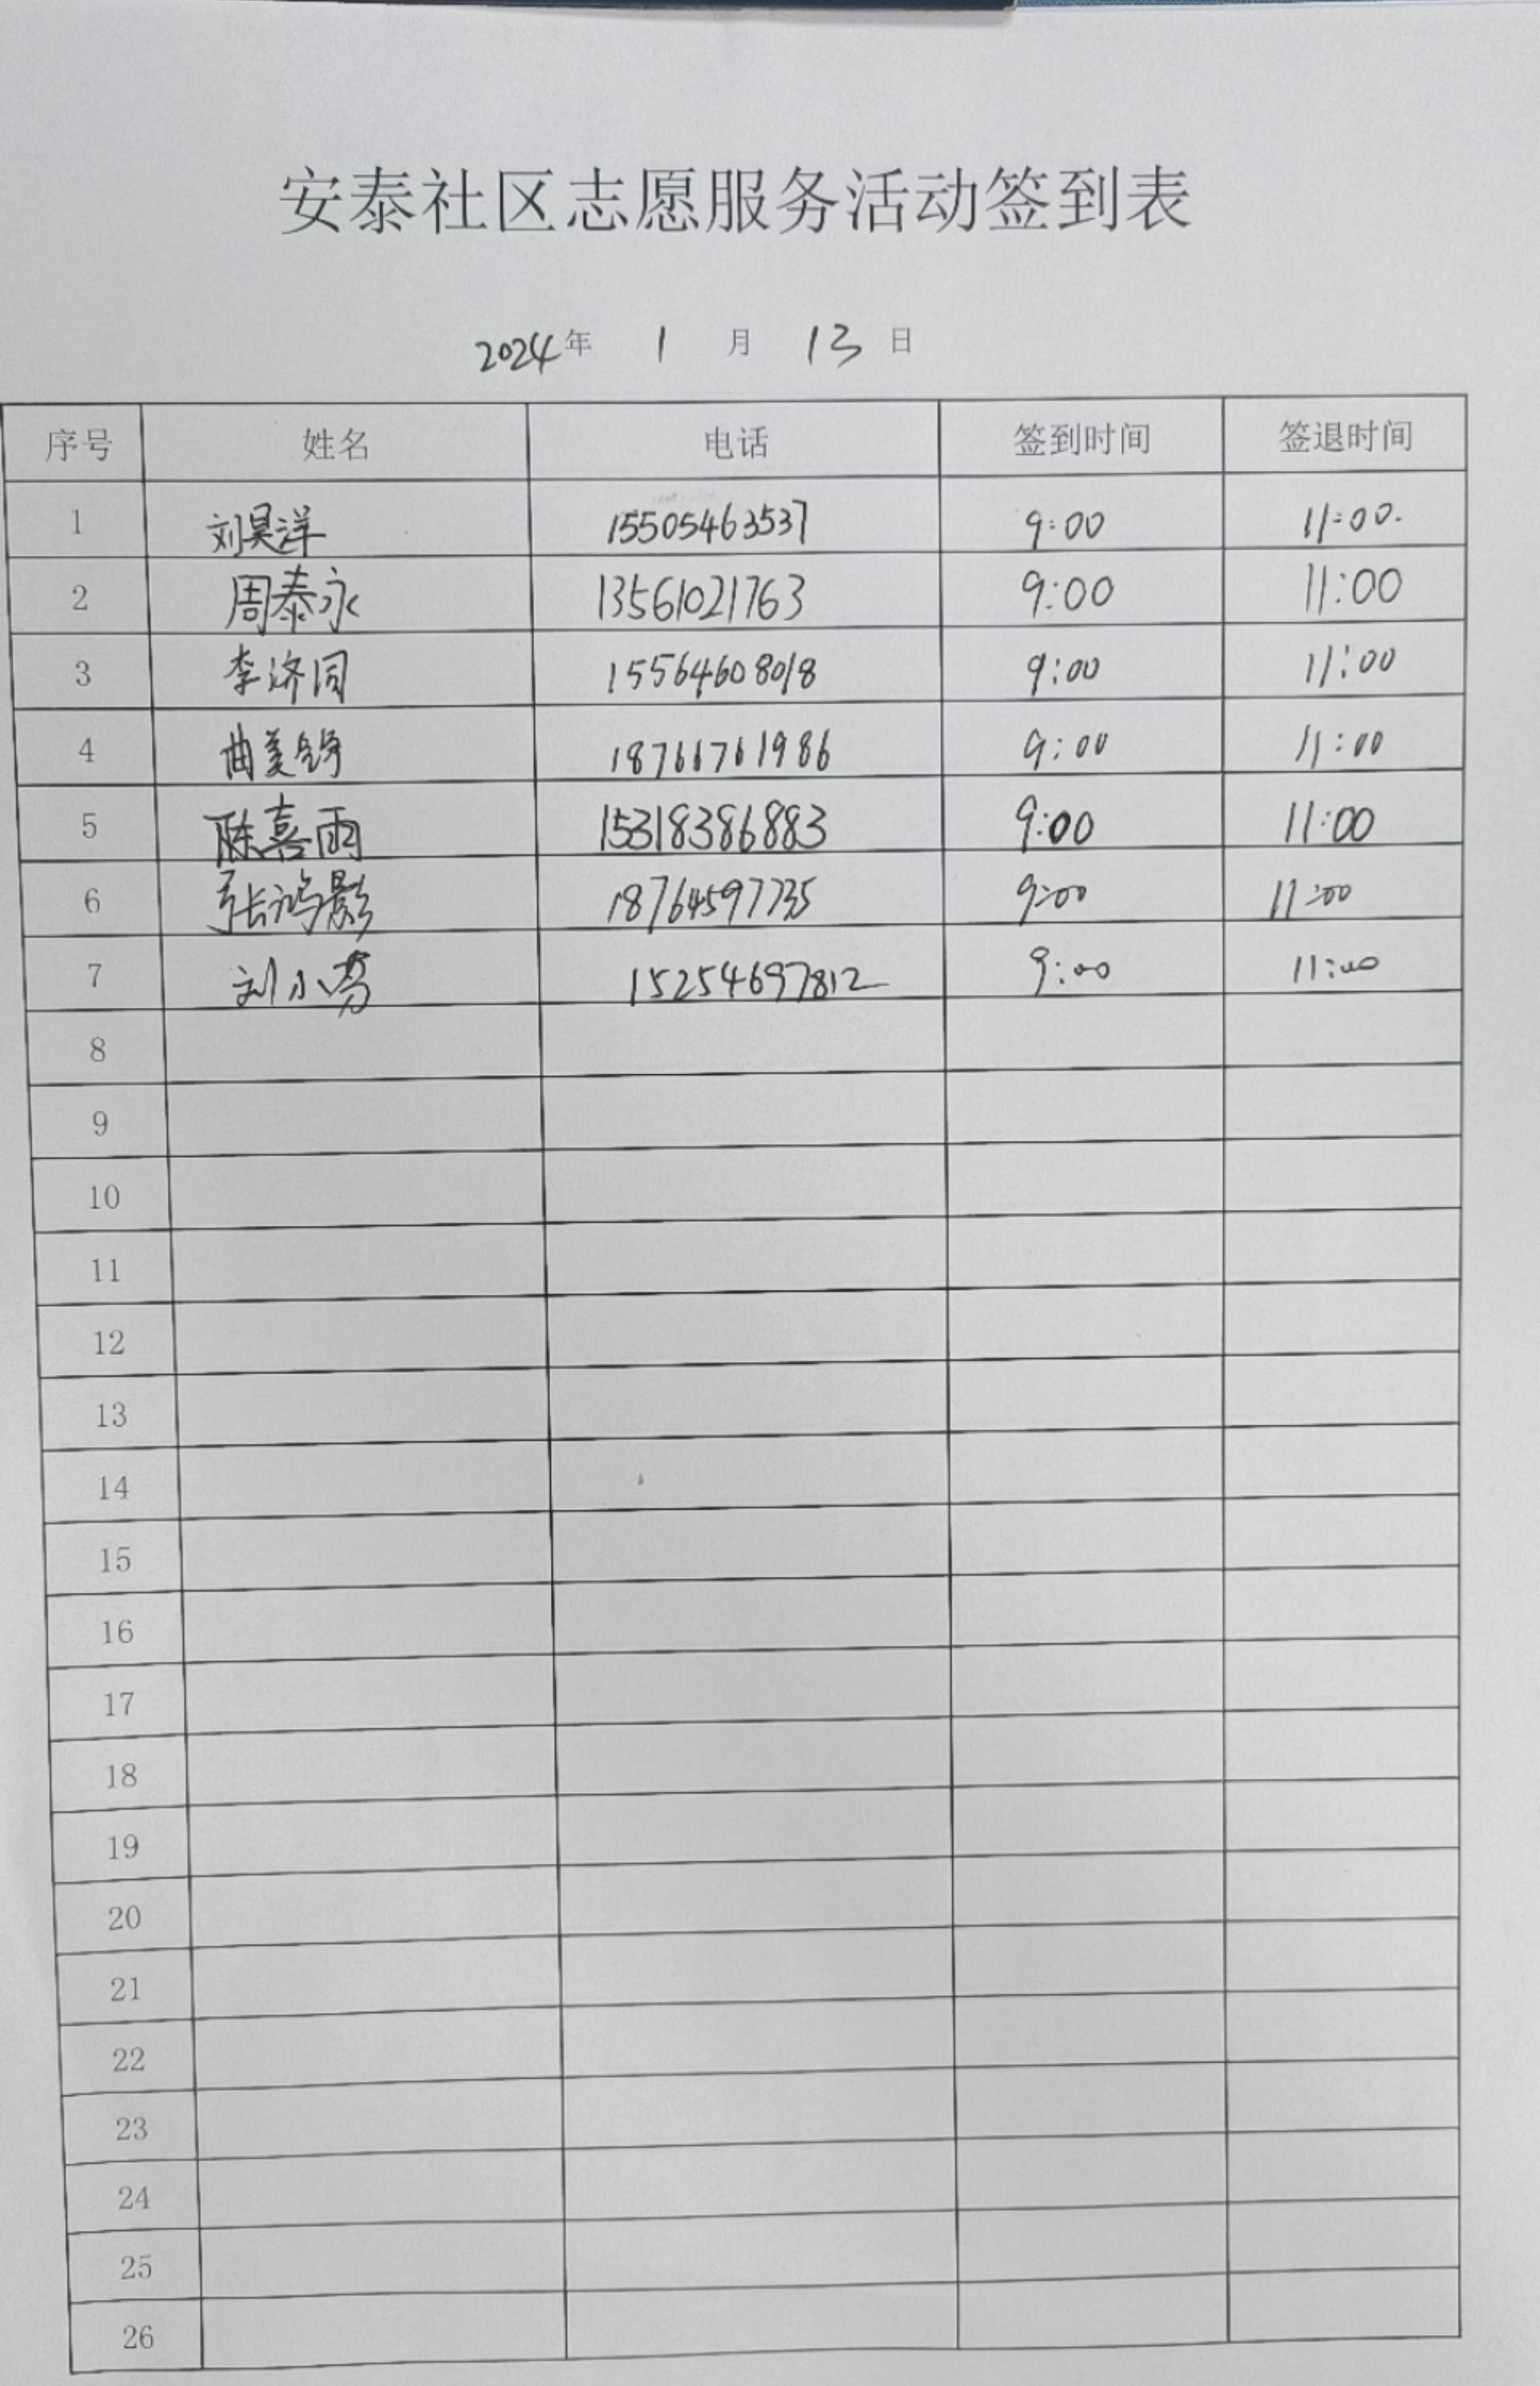 安泰社区志愿服务活动签到表
2024年 1 月 13 日
序号 姓名 电话 签到时间 签退时间
1 刘昊洋 15505463537 9:00 11:00.
2 周泰永 13561021763 9:00 11:00
3 李济同 15564608018 9:00 11:00
4 曲美铮 18766761986 9:00 11:00
5 陈喜雨 15318386883 9:00 11:00
6 张鸿影 18764597735 9:00 11:00
7 刘小芳 15254697812 9:00 11:00
8
9
10
11
12
13
14
15
16
17
18
19
20
21
22
23
24
25
26